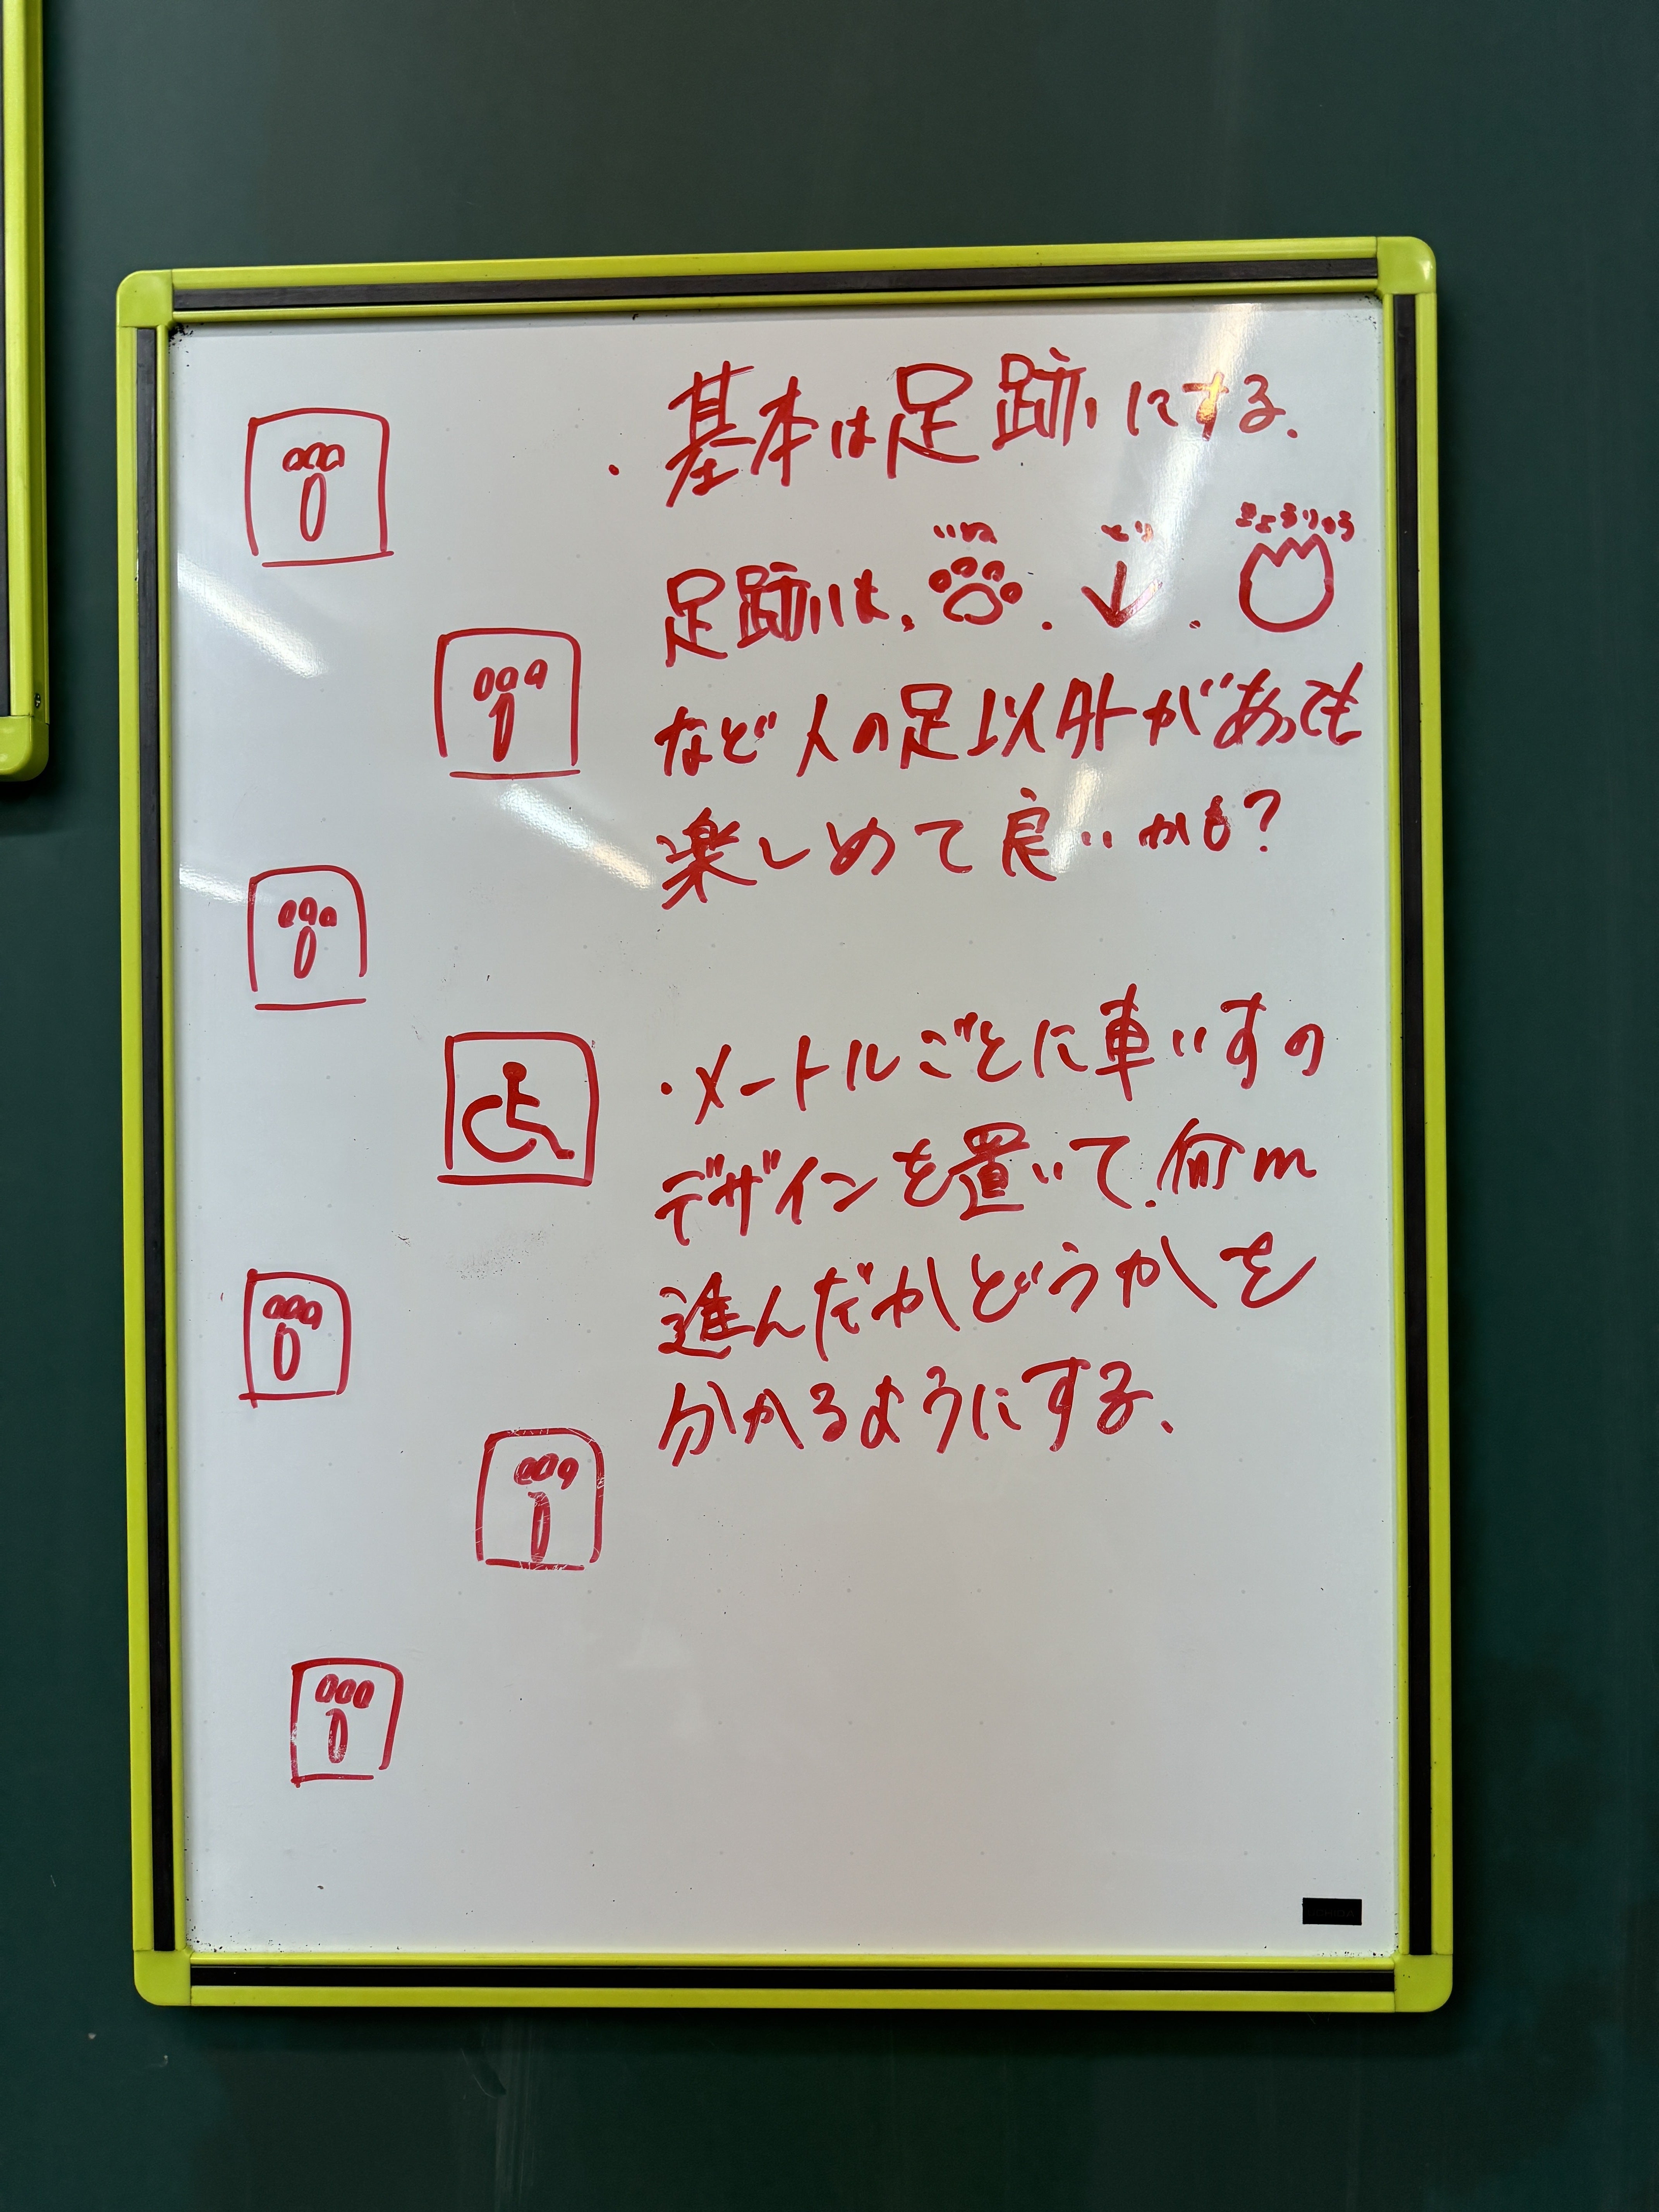 ・基本は足跡にする.
いぬ とり きょうりゅう
足跡は、
など人の足以外があっても
楽しめて良いかも?
・メートルごとに車いすの
デザインを置いて、何m
進んだかどうかを
分かるようにする、